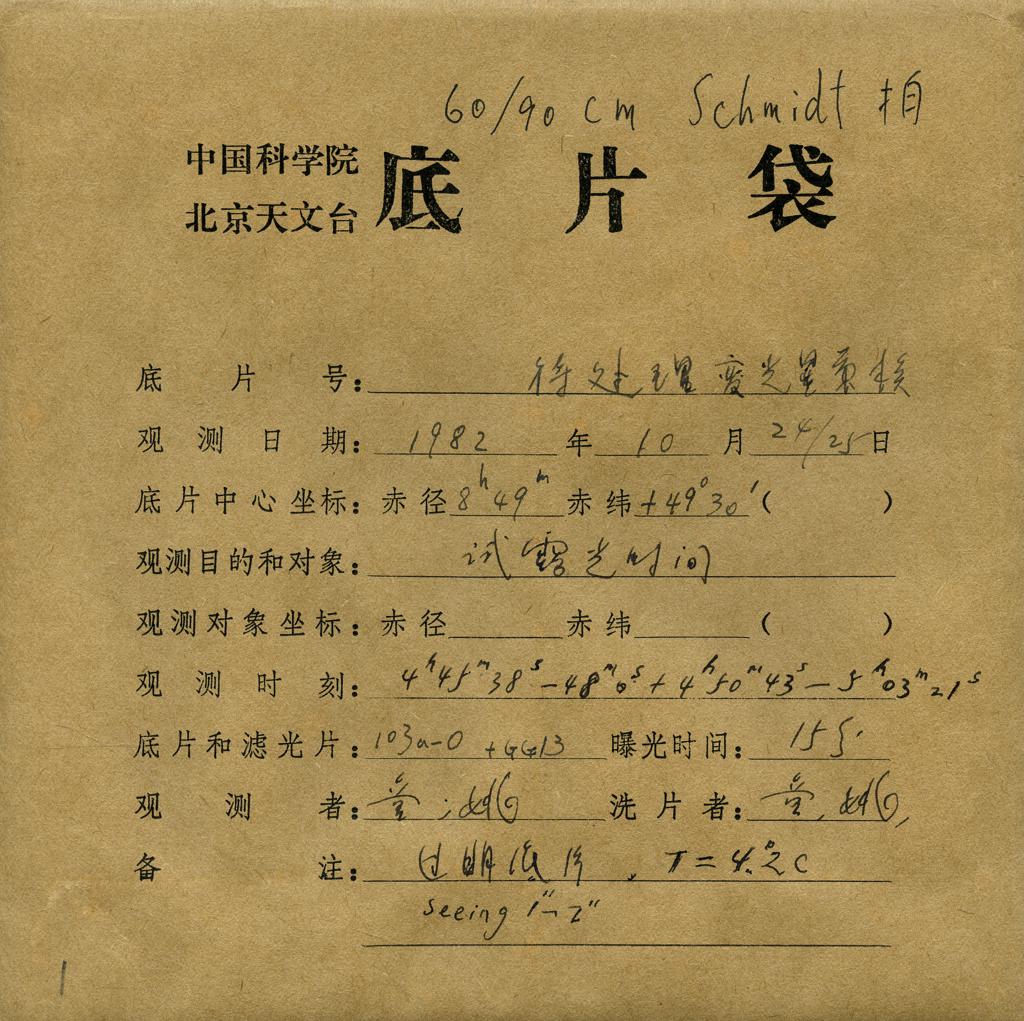 60/90 cm Schmidt 相
中国科学院
北京天文台 底片袋
底片号: 待处理变光星
观测日期: 1982 年 10 月 24/25 日
底片中心坐标: 赤径 8h 49m 赤纬 +49° 30′ ( )
观测目的和对象: 试露光时间
观测对象坐标: 赤径 赤纬 ( )
观测时刻: 4h45m38s-48m0s+4h50m43s-5h03m21s
底片和滤光片: 103a-O +GG13 曝光时间: 15
观测者: 洗片者:
备注: 过期底片. T=4.°2C
seeing 1″-2″
1